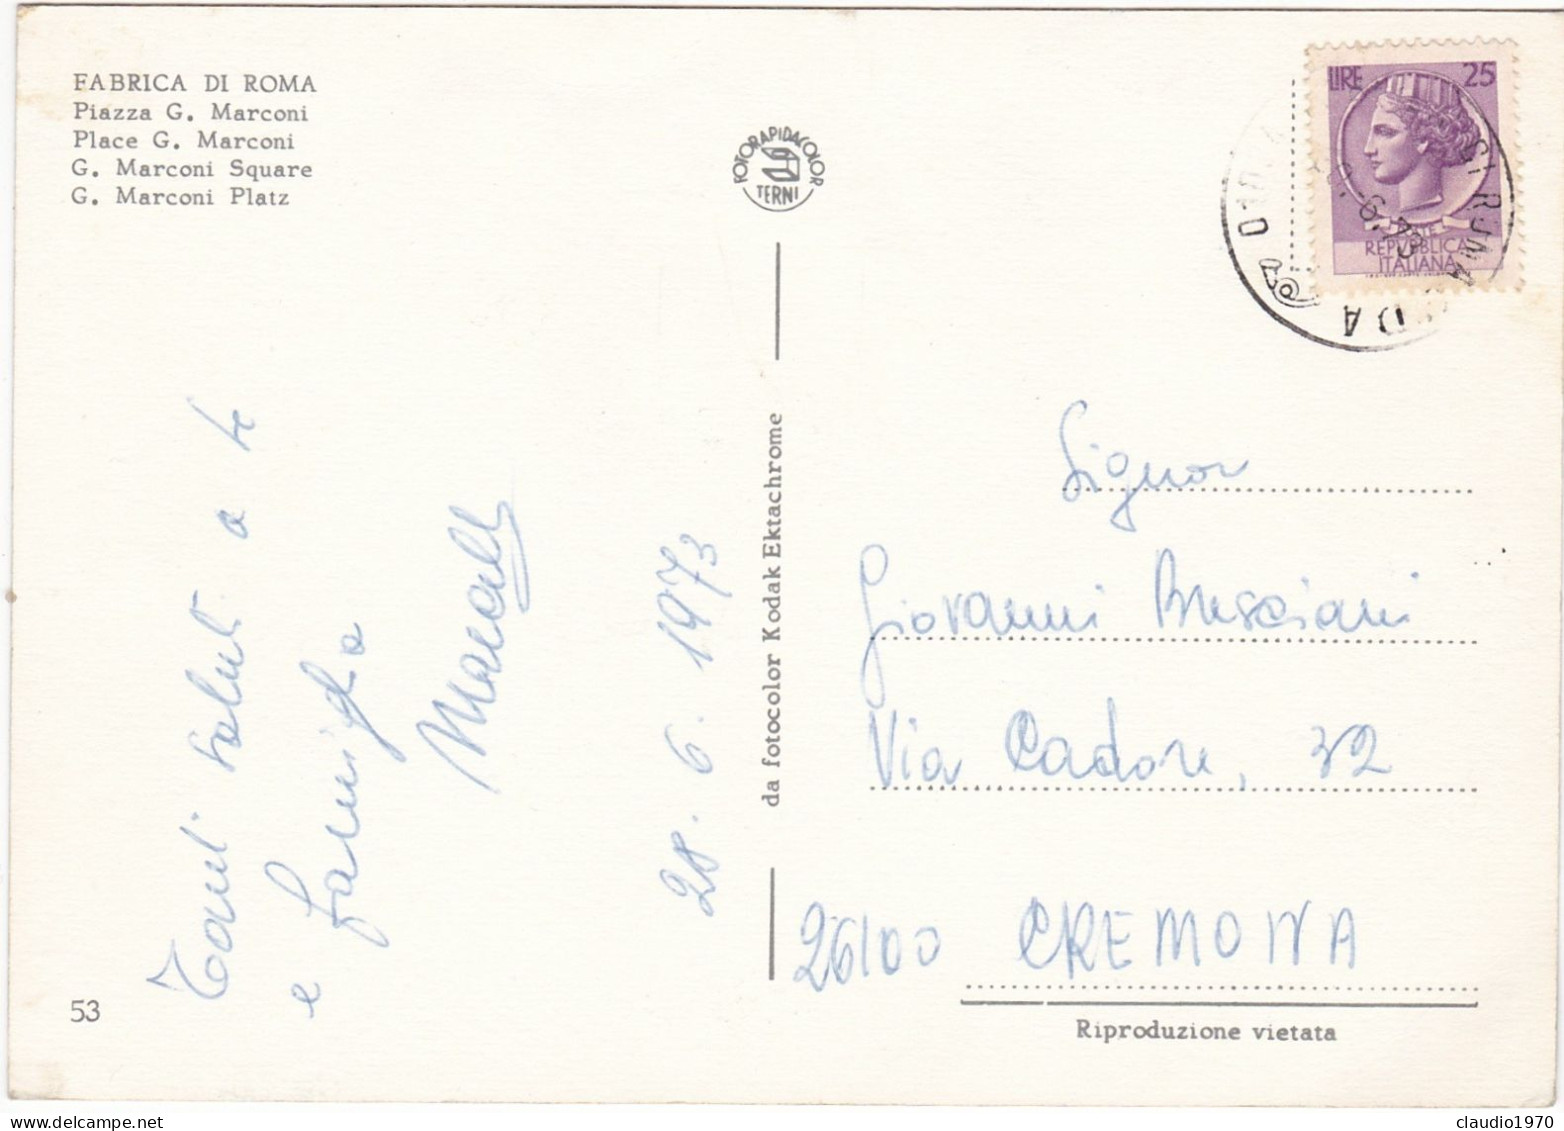 FABRICA DI ROMA
Piazza G. Marconi
Place G. Marconi
G. Marconi Square
G. Marconi Platz
FOTORAPIDACOLOR
TERNI
LIRE 25
REPVBBLICA
ITALIANA
Tanti saluti a te
e famiglia
28. 6. 1973
da fotocolor Kodak Ektachrome
Signor
Giovanni Bresciani
Via Cadore, 32
26100 CREMONA
Riproduzione vietata
53
claudio1970